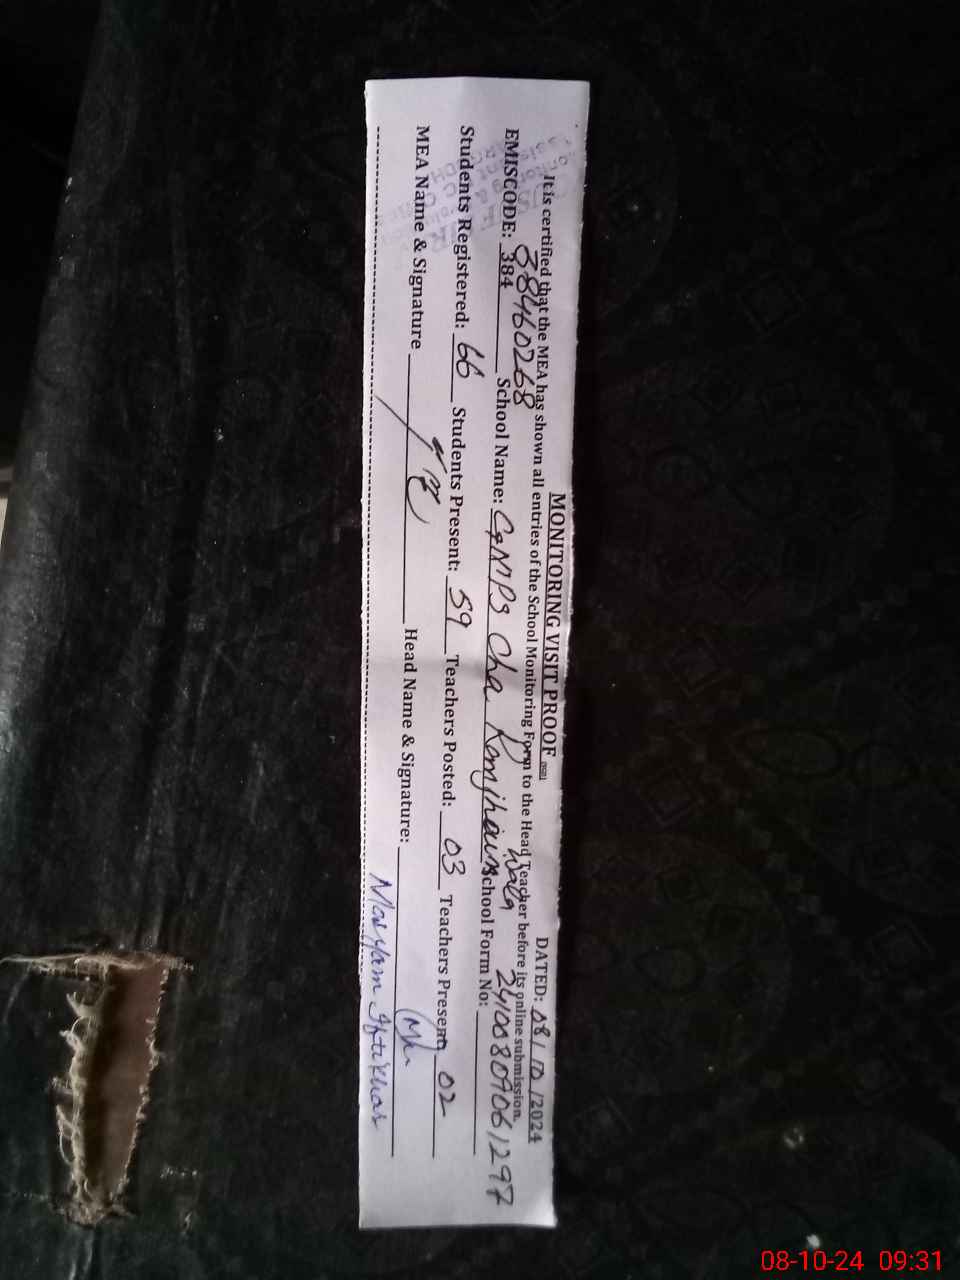 MONITORING VISIT PROOF
DATED: 08/10/2024
It is certified that the MEA has shown all entries of the School Monitoring Form to the Head Teacher before its online submission.
EMISCODE: 384 38460268 School Name: GMPS Cha Wala School Form No: 24100809061297
Students Registered: 66 Students Present: 59 Teachers Posted: 03 Teachers Present 02
MEA Name & Signature Head Name & Signature:
Maryam Iftikhar
08-10-24 09:31